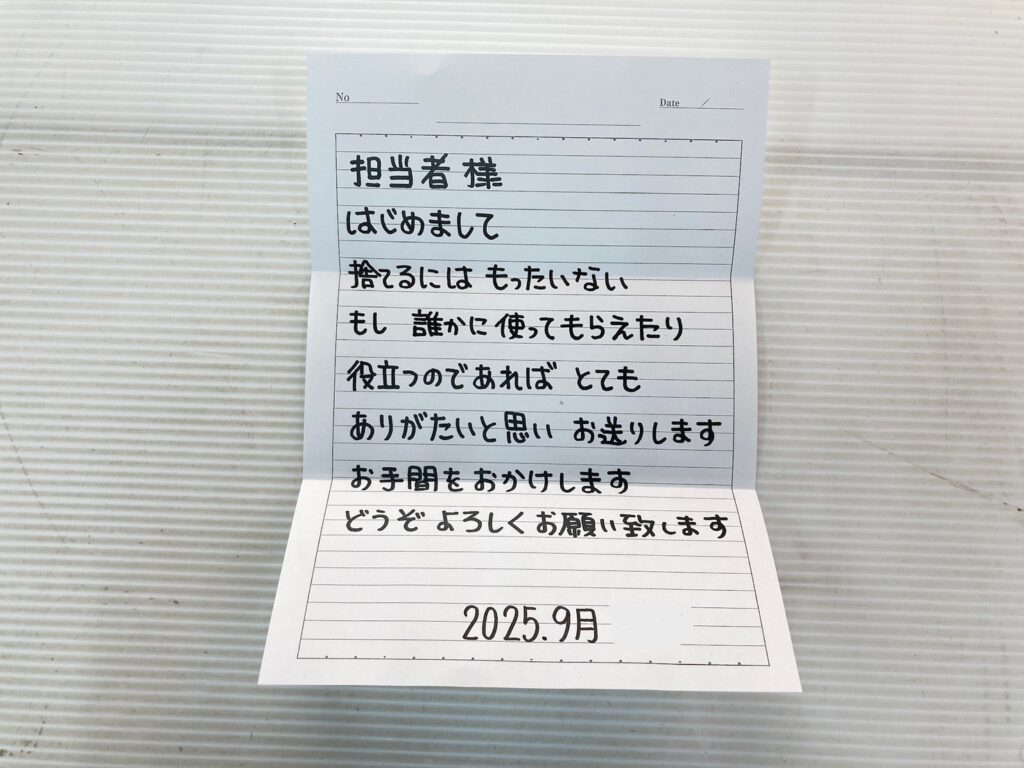 No
Date /
担当者 様
はじめまして
捨てるには もったいない
もし 誰かに 使ってもらえたり
役立つのであれば とても
ありがたいと思い お送りします
お手間を おかけします
どうぞ よろしくお願い致します
2025.9月